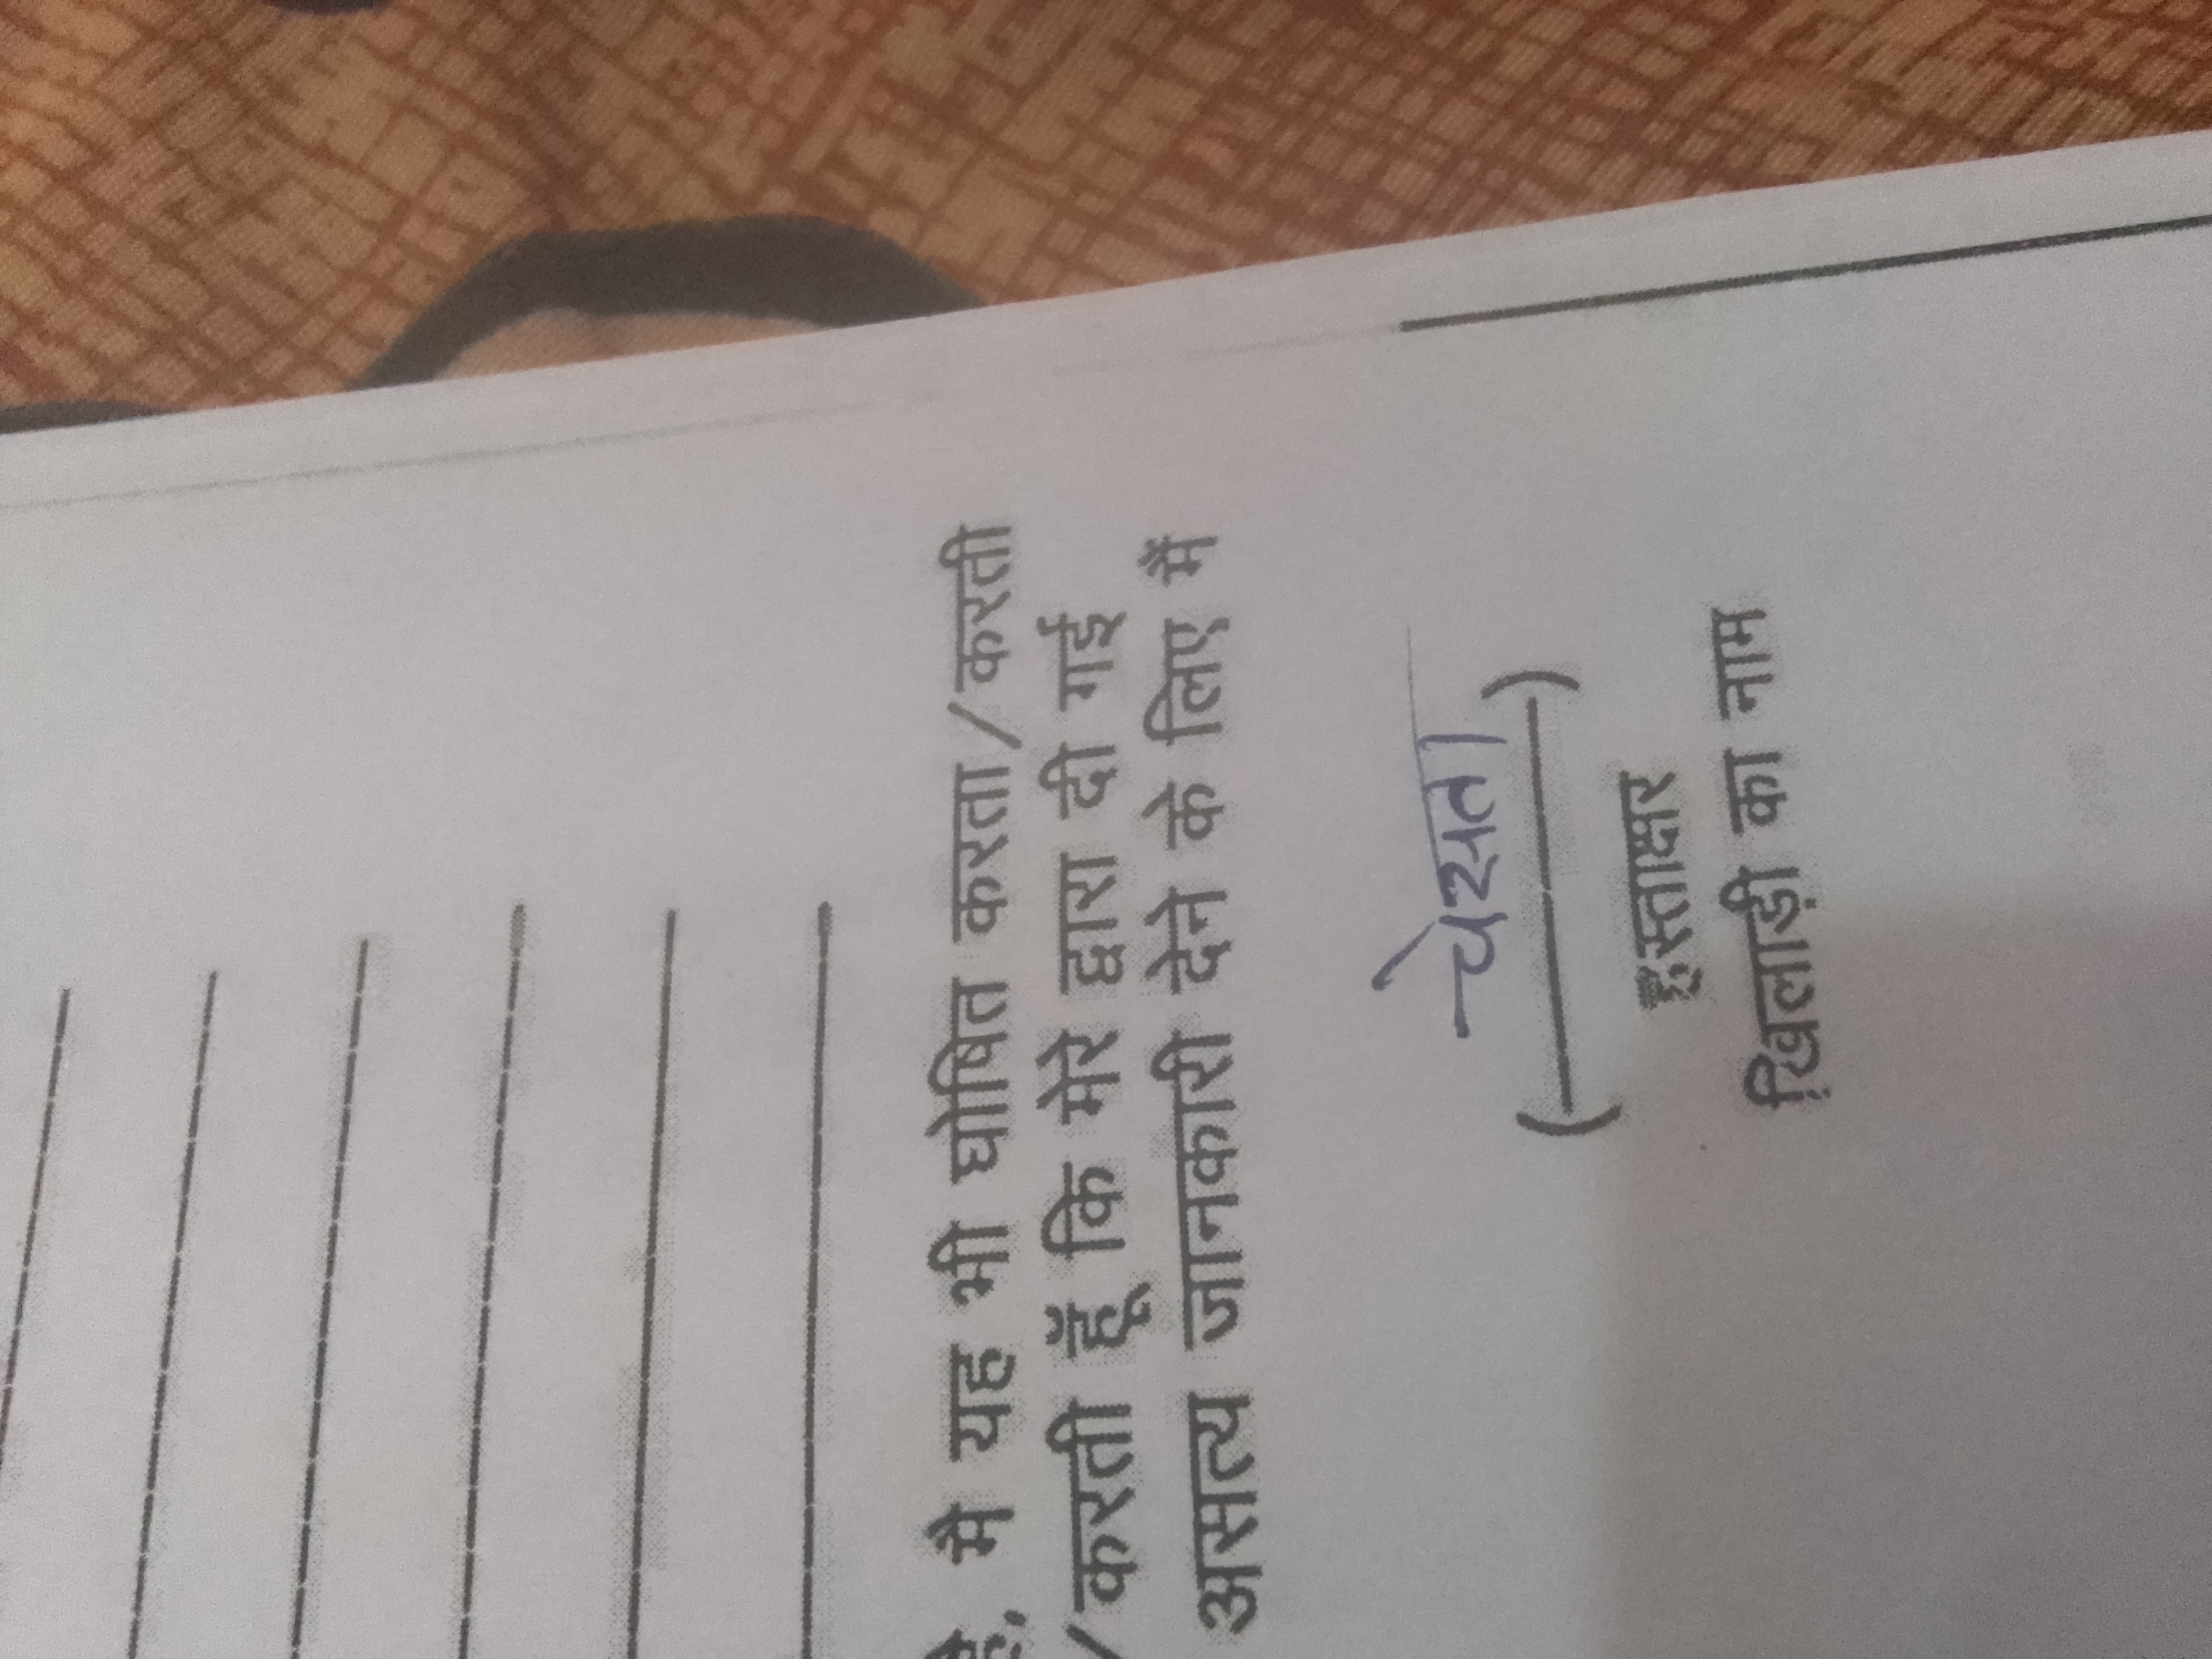 है, मै यह भी घोषित करता/करती
/करती हूँ कि मेरे द्वारा दी गई
असत्य जानकारी देने के लिए मैं
हस्ताक्षर
खिलाड़ी का नाम